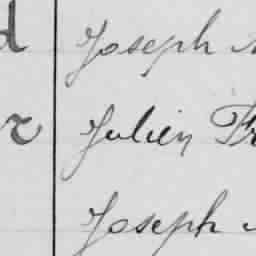 d Joseph
r Julien Fr
Joseph